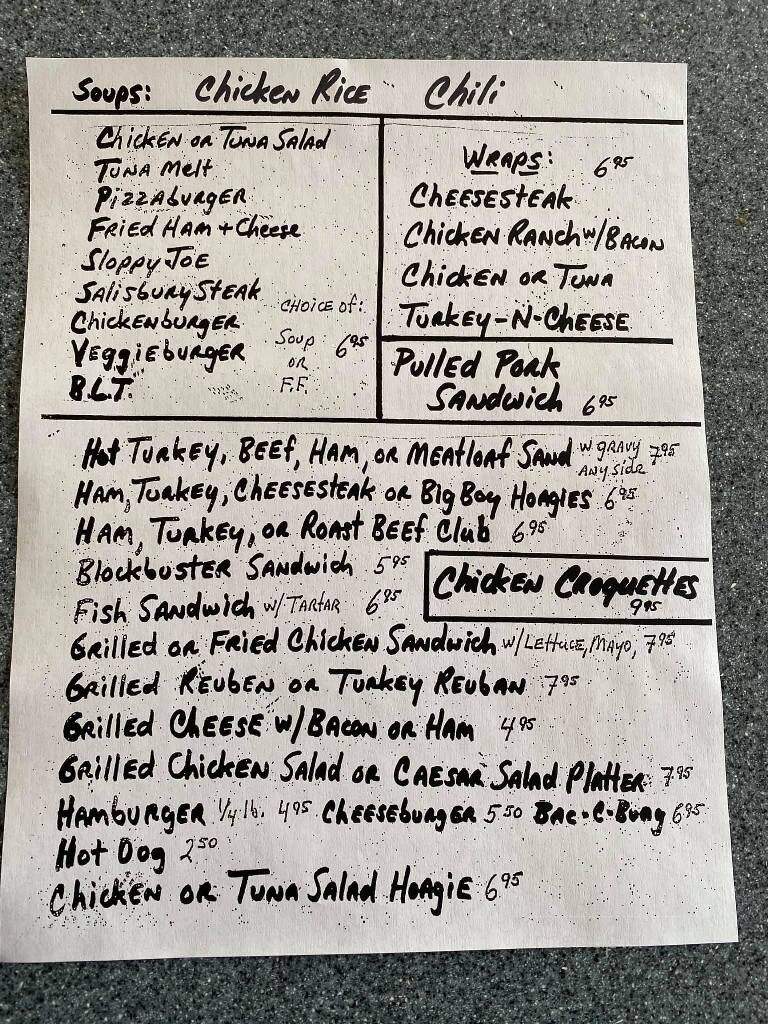 Soups: Chicken Rice Chili
Chicken or Tuna Salad
Tuna Melt
Pizzaburger
Fried Ham + Cheese
Sloppy Joe
Salisbury Steak
Chickenburger
Veggieburger
B.L.T.
Choice of:
Soup 6.95
or
F.F.
Wraps: 6.95
Cheesesteak
Chicken Ranch w/Bacon
Chicken or Tuna
Turkey-N-Cheese
Pulled Pork
Sandwich 6.95
Hot Turkey, Beef, Ham, or Meatloaf Sand w gravy any side 7.95
Ham, Turkey, Cheesesteak or Big Boy Hoagies 6.95
Ham, Turkey, or Roast Beef Club 6.95
Blockbuster Sandwich 5.95
Fish Sandwich w/Tartar 6.95
Chicken Croquettes
9.95
Grilled or Fried Chicken Sandwich w/Lettuce, Mayo, 7.95
Grilled Reuben or Turkey Reuban 7.95
Grilled Cheese w/Bacon or Ham 4.95
Grilled Chicken Salad or Caesar Salad Platter 7.95
Hamburger 1/4 lb. 4.95 Cheeseburger 5.50 Bac-C-Burg 6.95
Hot Dog 2.50
Chicken or Tuna Salad Hoagie 6.95